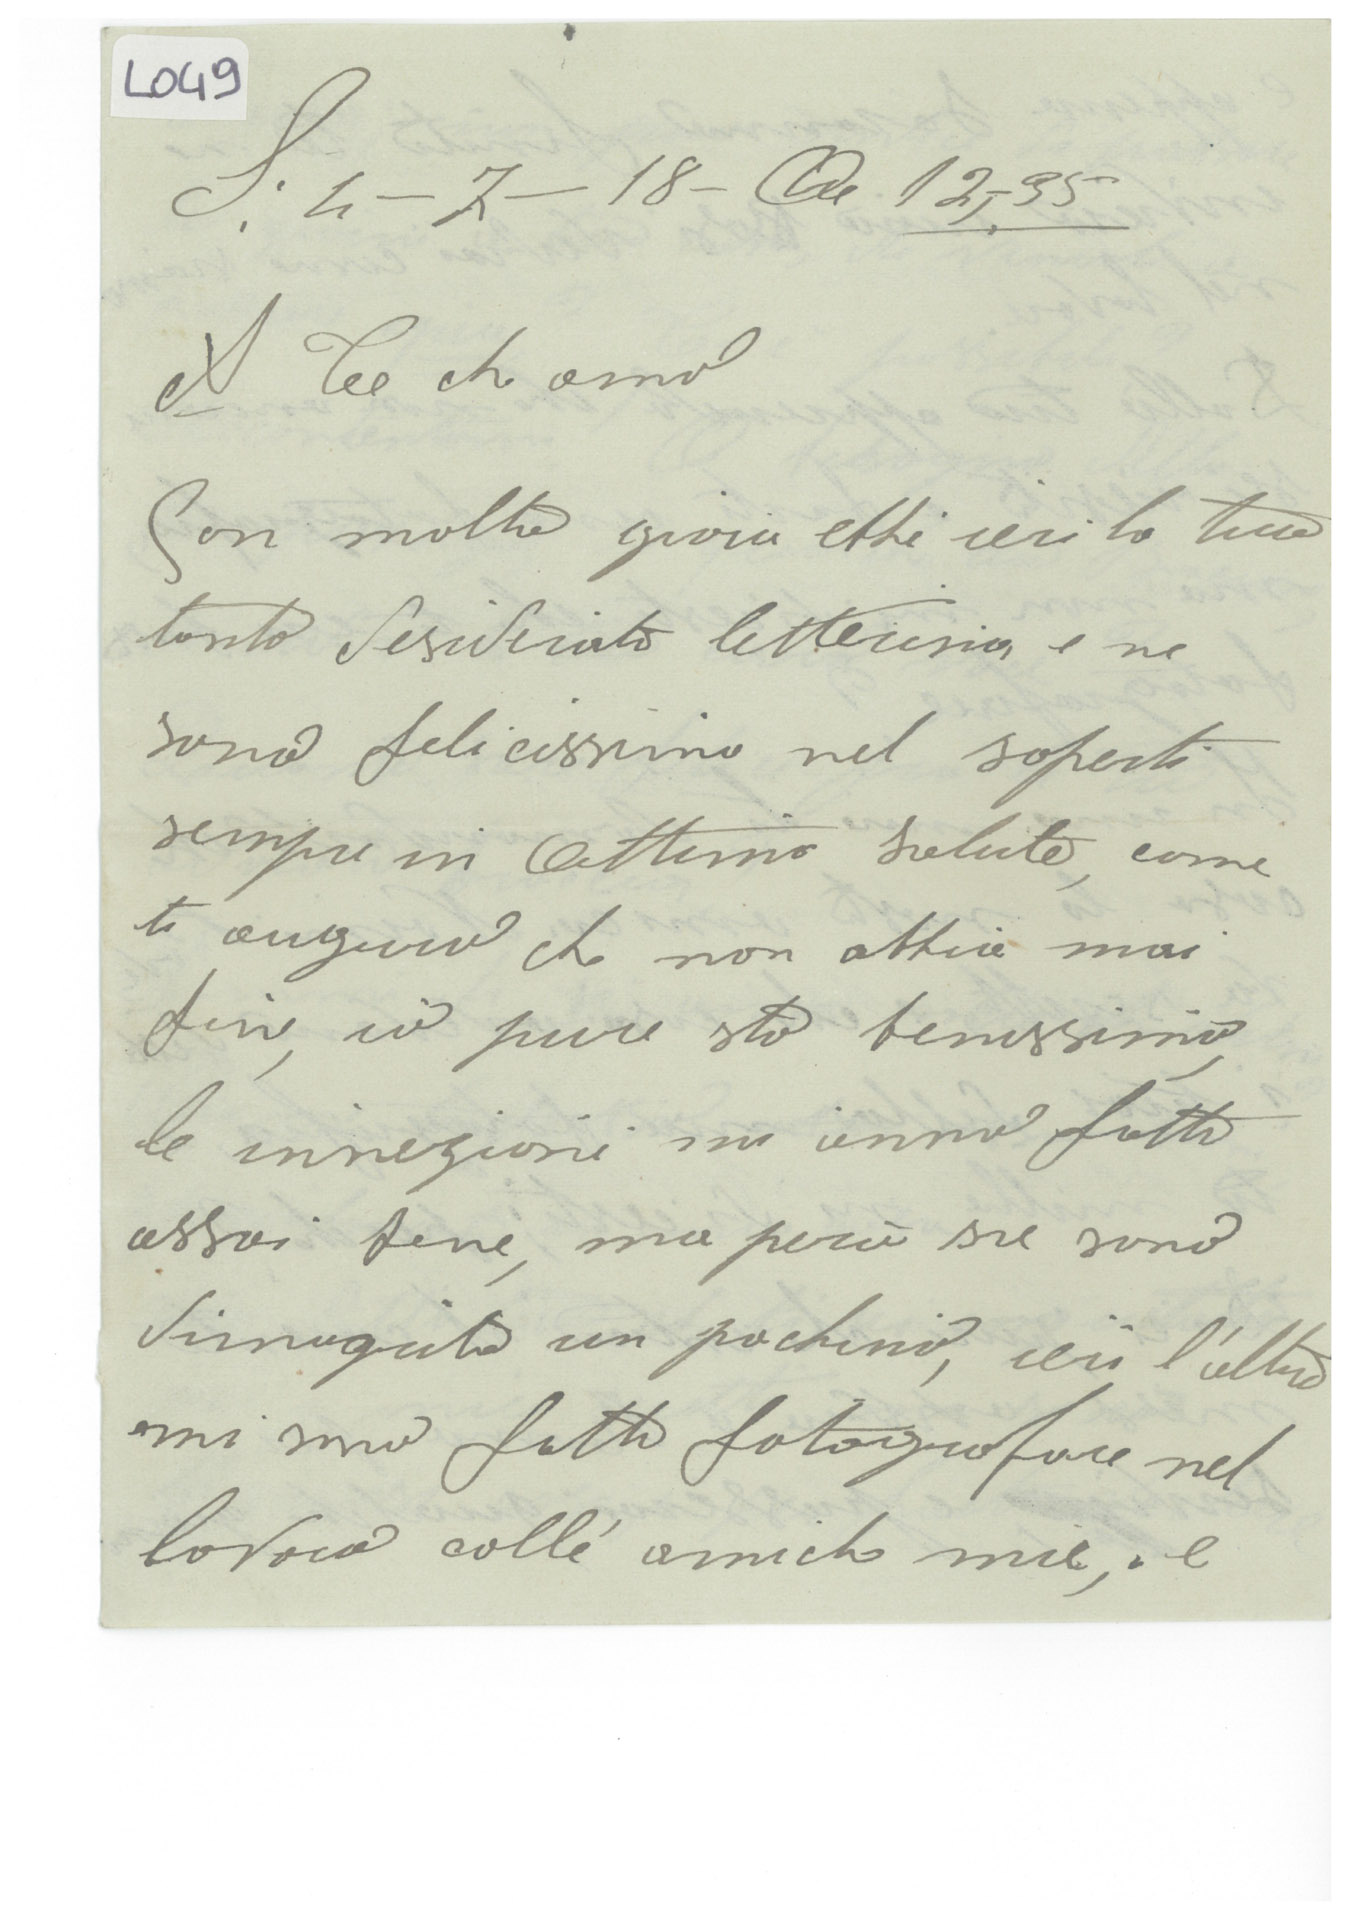 L049
S. 4-7-18- Ore 12,35
A Te che amo
Con molta gioia ebbi ieri la tua
tanto desiderata letterina, e ne
sono felicissima nel saperti
sempre in ottima salute, come
ti auguro che non abbia mai
fine, io pure sto benissimo,
le innezioni mi anno fatto
assai bene, ma però sie sono
dimagrita un pochino, ieri l'altro
mi sono fatto fotografare nel
lavoro colle amiche mie, e